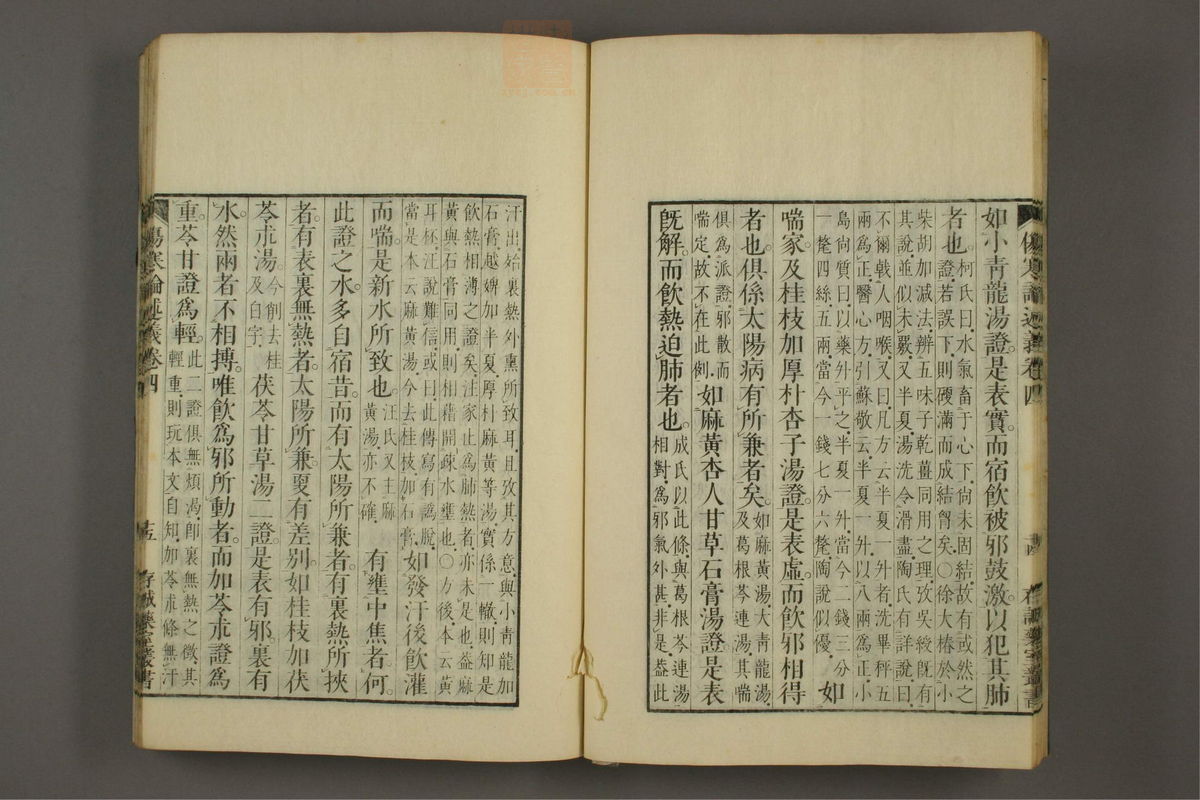 傷寒論述義卷四
如小青龍湯證是表實而宿飲被邪鼓激以犯其肺
者也柯氏曰水氣畜于心下尙未固結故有或然之
證若誤下則硬滿而成結胷矣○徐大椿於小
柴胡加減法辨五味子乾薑同用之理攷吳綬旣有
其說並似未覈又半夏湯洗令滑盡陶氏有詳說曰
不爾戟人咽喉又曰凡方云半夏一升者洗畢秤五
兩爲正醫心方引蘇敬云半夏一升以八兩爲正小
島尙質曰以藥升平之半夏一升當今二錢三分
一氂四絲五兩當今一錢七分六氂陶說似優如
喘家及桂枝加厚朴杏子湯證是表虛而飲邪相得
者也俱係太陽病有所兼者矣如麻黃湯大青龍湯
及葛根芩連湯其喘
俱爲派證邪散而
喘定故不在此例如麻黃杏人甘草石膏湯證是表
旣解而飲熱迫肺者也成氏以此條與葛根芩連湯
相對爲邪氣外甚非是葢此
汗出始裏熱外熏所致耳且攷其方意與小青龍加
石膏越婢加半夏厚朴麻黃等湯實係一轍則知是
飲熱相薄之證矣注家止爲肺熱者亦未是也葢麻
黃與石膏同用則相藉開疎水壅也○方後本云黃
耳柸汪說難信或曰此傳寫有譌脫
當是本云麻黃湯今去桂枝加石膏如發汗後飲灌
而喘是新水所致也汪氏又主麻
黃湯亦不確有壅中焦者何
此證之水多自宿昔而有太陽所兼者有裏熱所挾
者有表裏無熱者太陽所兼更有差別如桂枝加茯
苓朮湯今創去桂
及白字茯苓甘草湯二證是表有邪裏有
水然兩者不相搏唯飲爲邪所動者而加苓朮證爲
重苓甘證爲輕此二證俱無煩渴卽裏無熱之徵其
輕重則玩本文自知加苓朮條無汗
傷寒論述義卷四